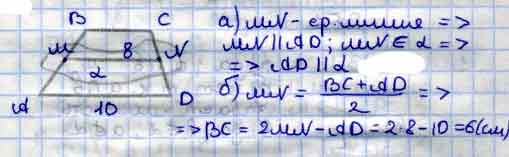 B C
M 8 N
α
A 10 D
а) MN - ср. линия =>
MN || AD; MN ∈ α =>
=> AD || α
б) MN = BC + AD / 2 =>
=> BC = 2MN - AD = 2·8 - 10 = 6(см)